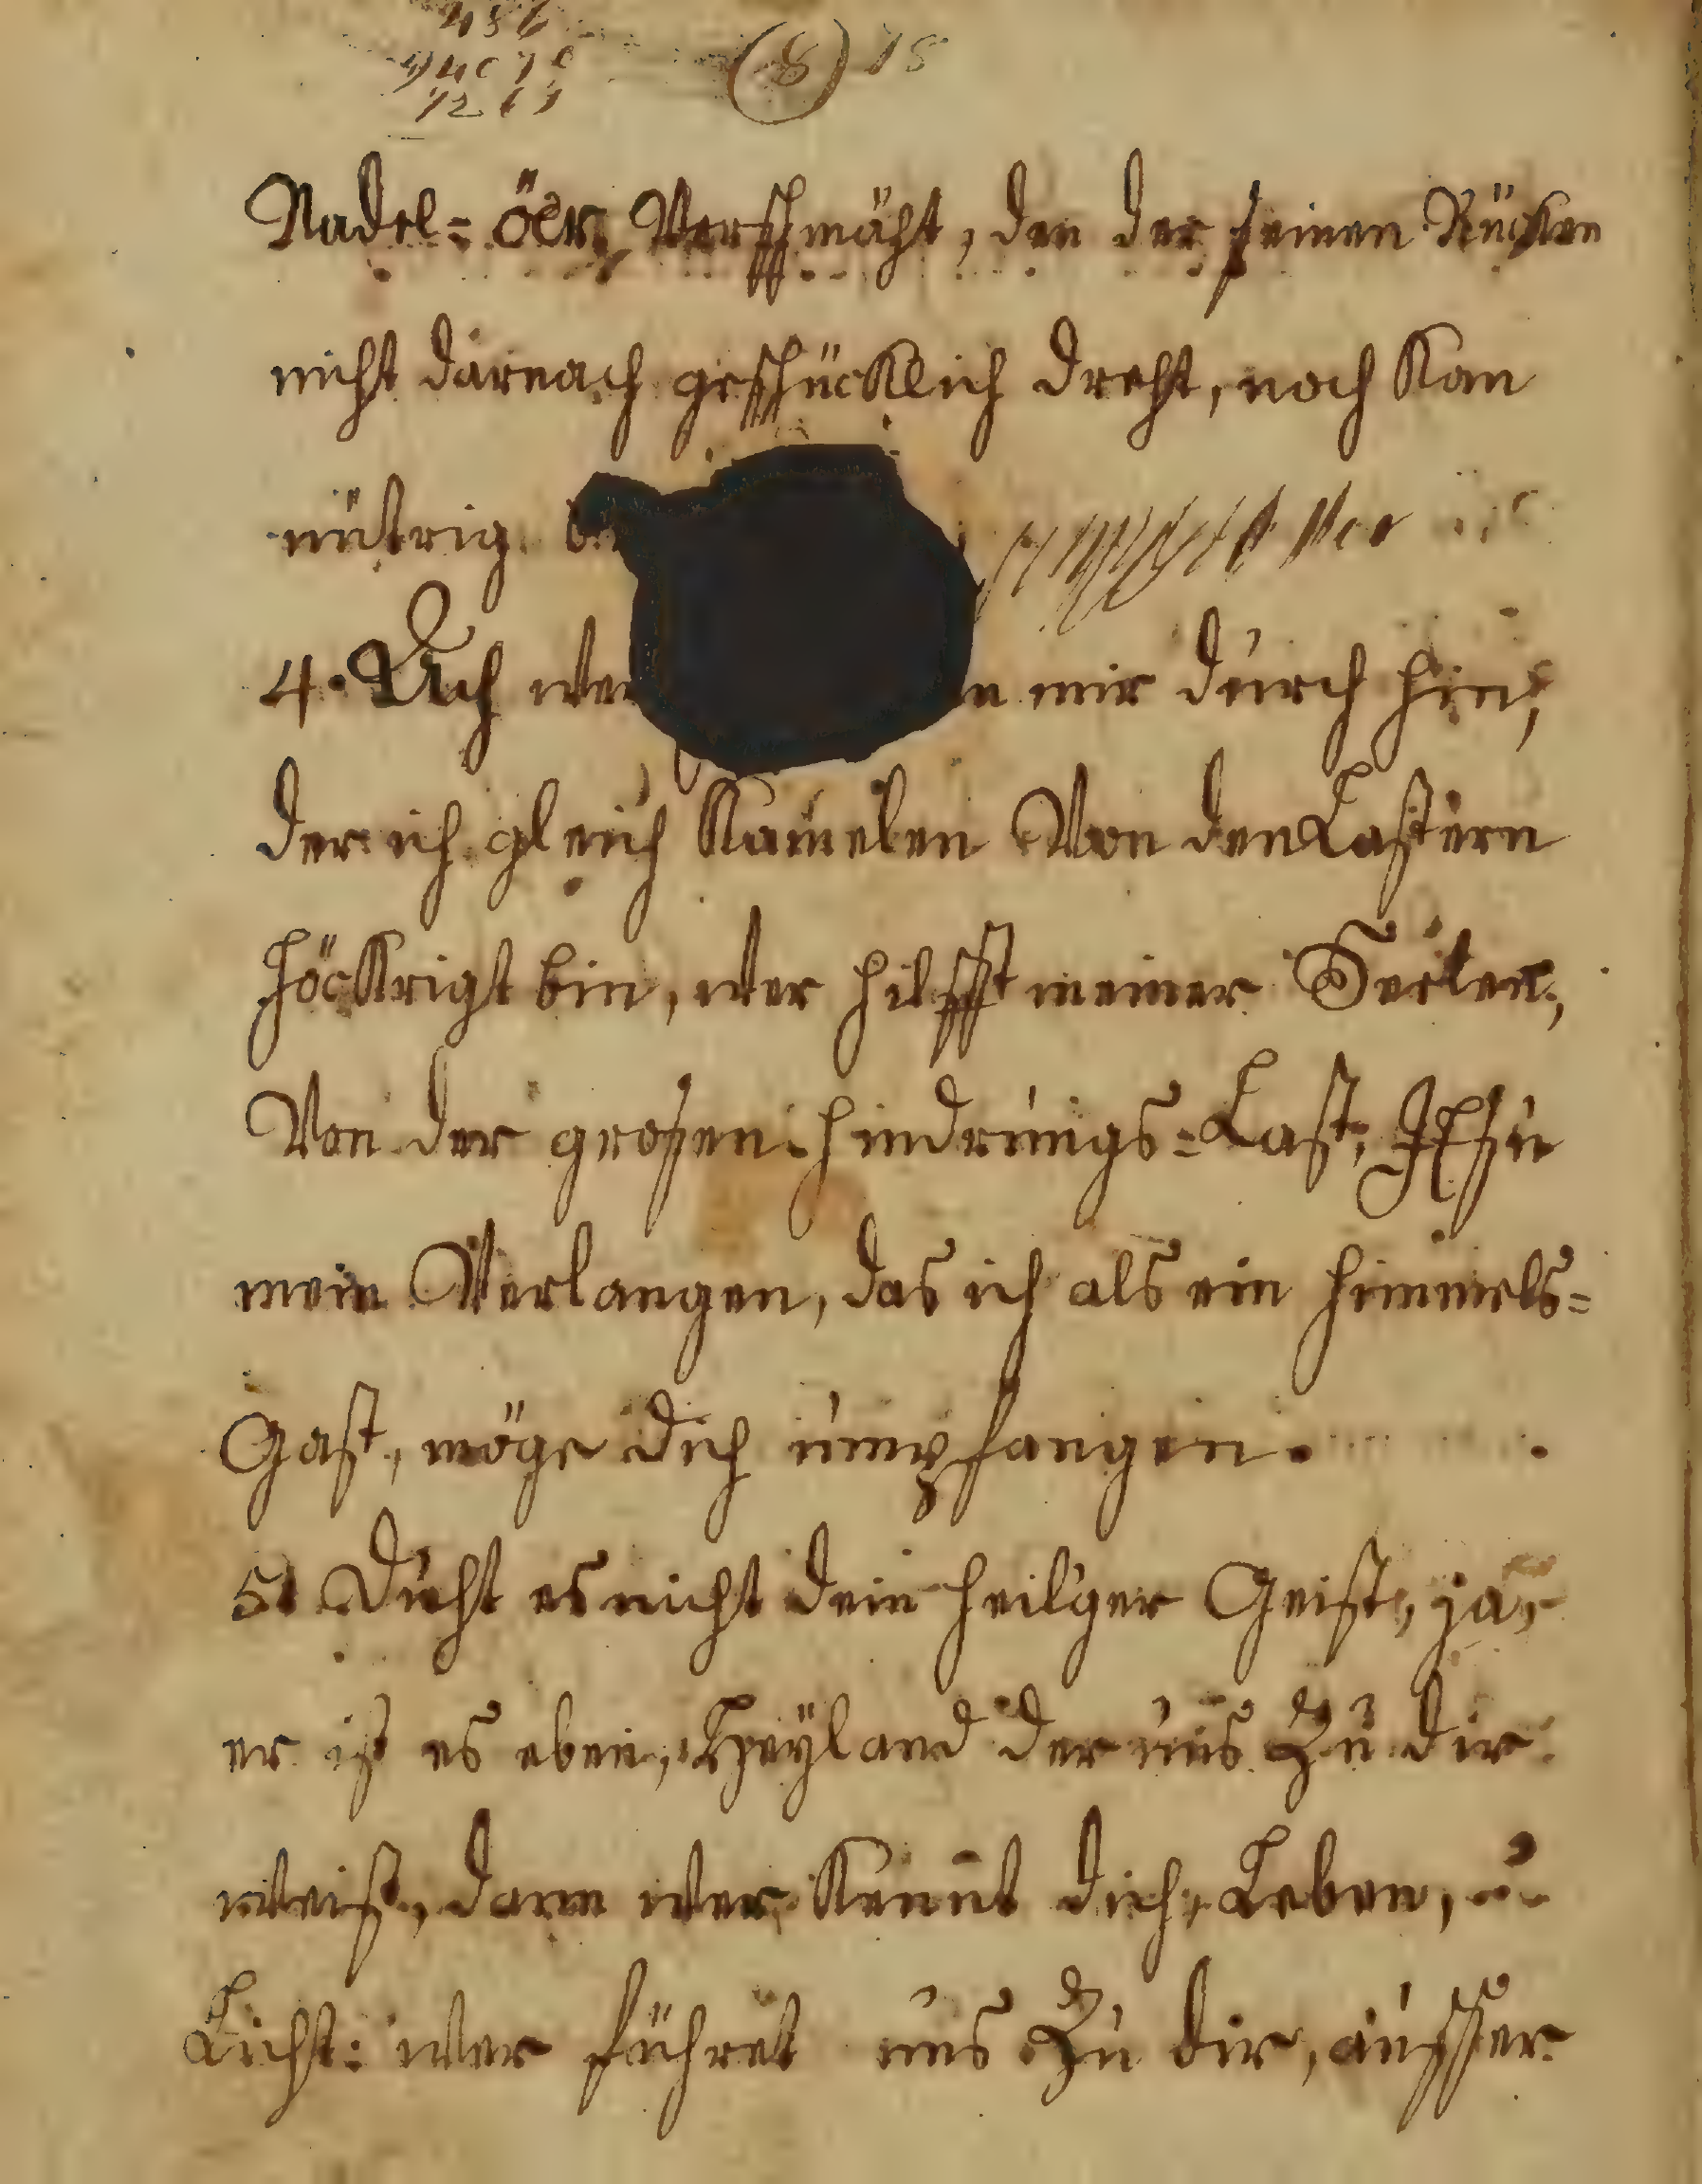 (8) 18
Nadel= öer Verschmäht, den der seinen Rücken
nicht darnach geschücklich dreht, noch kan
nüdrig
4. Ach wer mir durch hin,
der ich gleich Kameelen Von den Lastern
höckrigt bin, wer hilfft meiner Seelen,
Von der grosen hindrungs=Last, JEsu
mein Verlangen, das ich als ein himmels=
Gast, möge dich umpfangen.
5. Duht es nicht dein heilger Geist, ja,
er ist es eben, Heyland der uns Zu dir
weist, dann wer Kennt dich Leben,
Licht: wer führet uns Zu dir, ausser